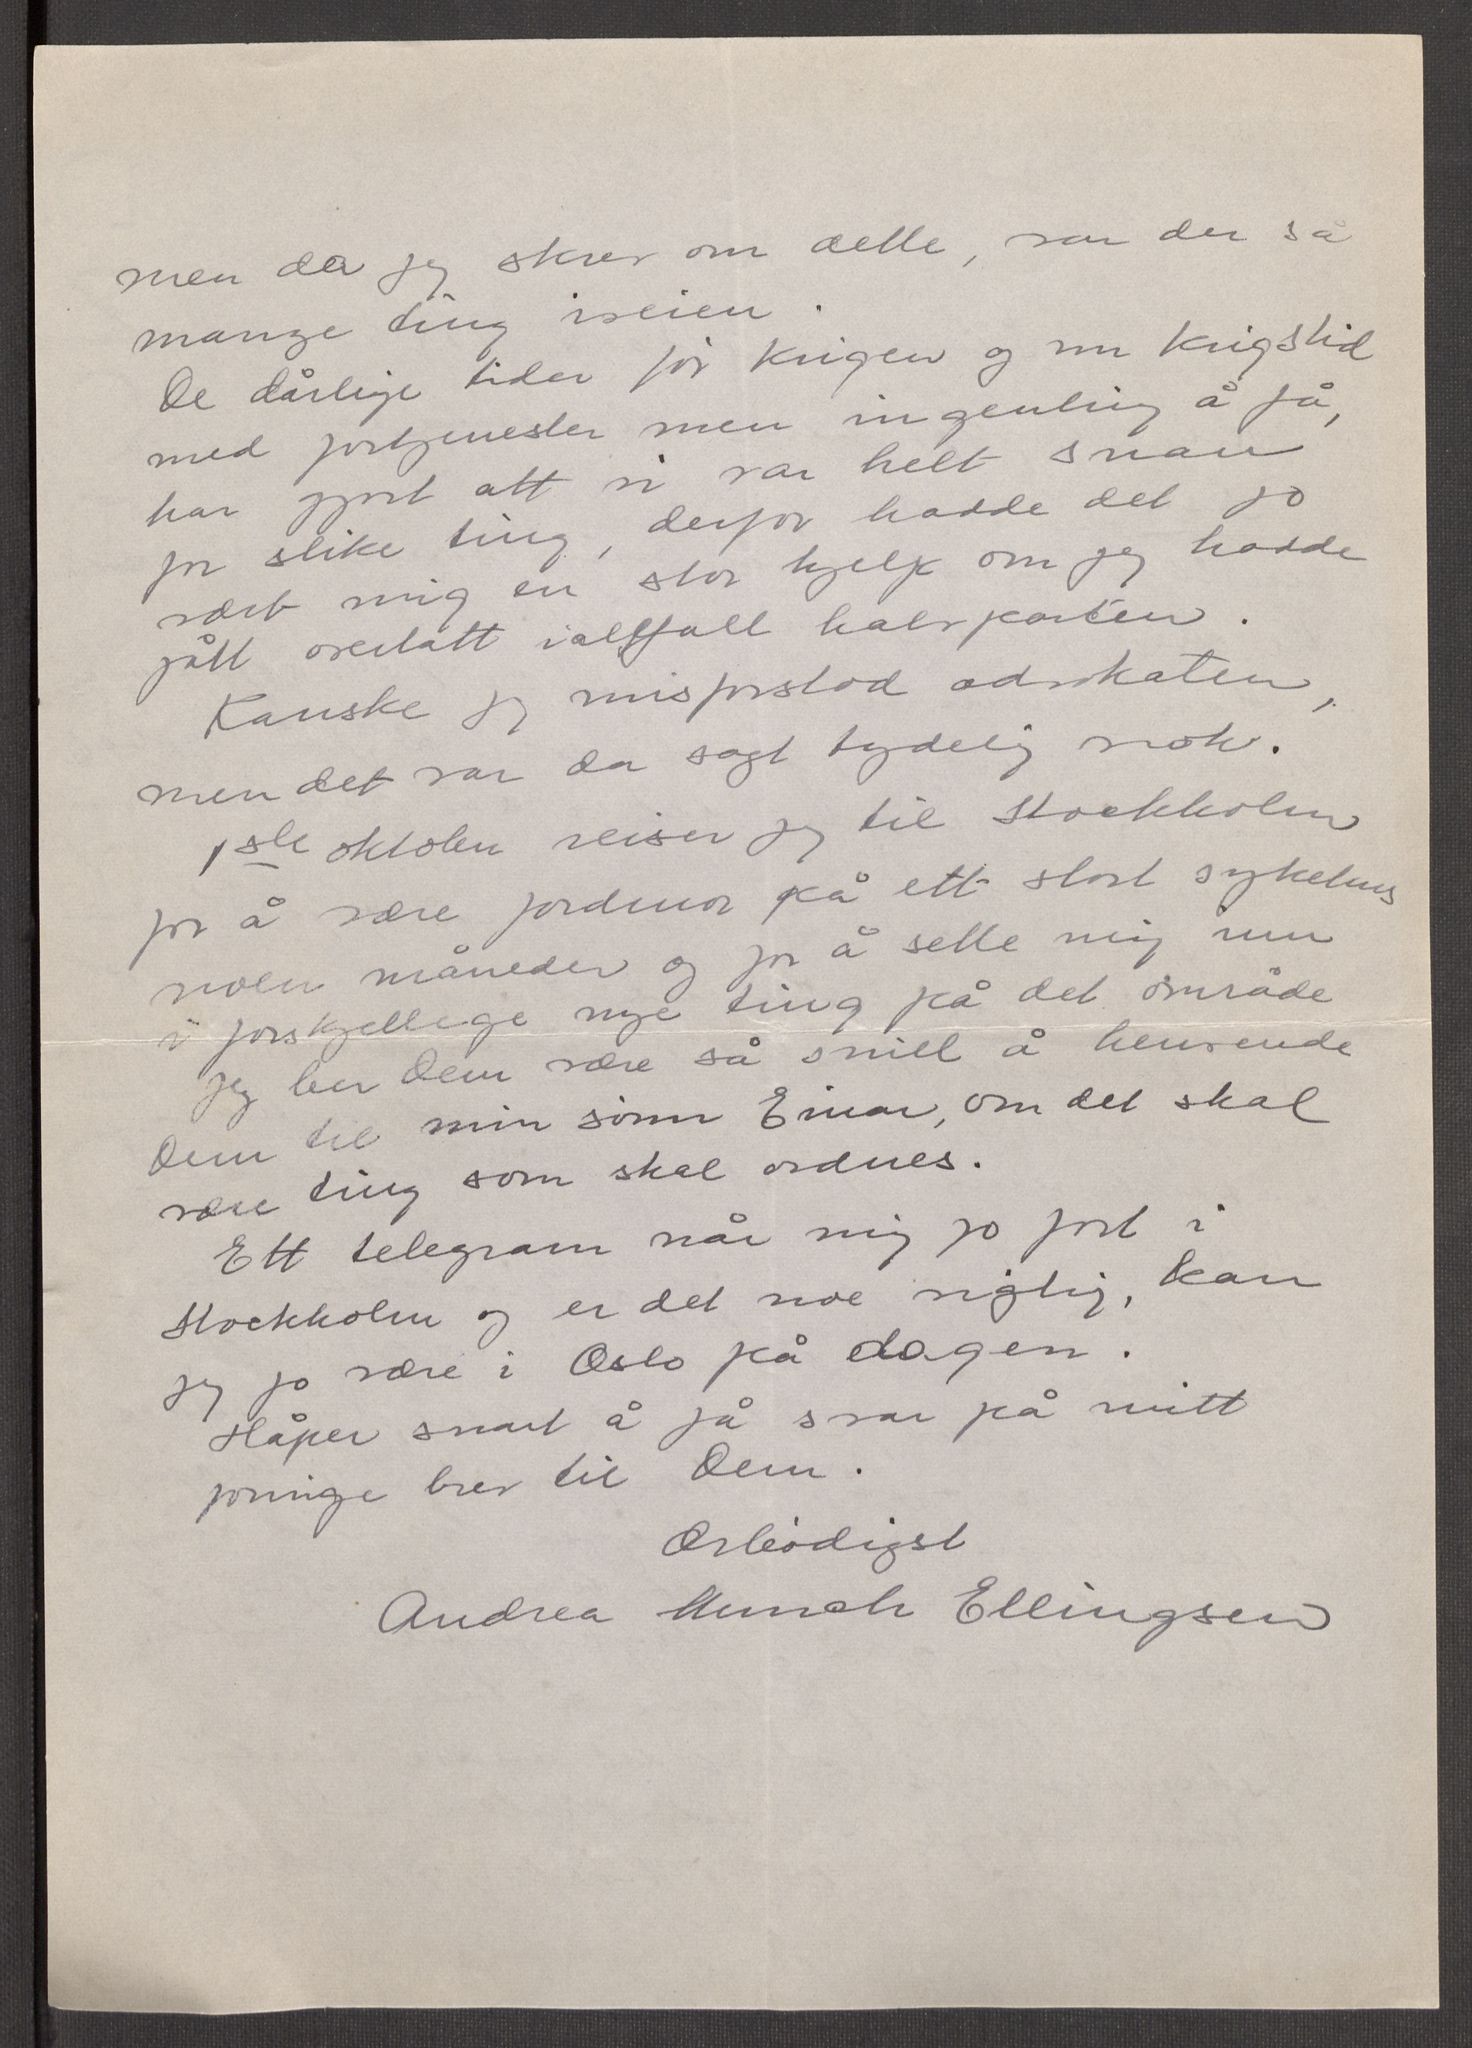 men da jeg skrev om dette, var der så
mange ting iveien.
De dårlige tider før krigen og nu krigstid
med fortjenester men ingenting å få,
har gjort att vi var helt snau
for slike ting, derfor hadde det jo
vært mig en stor hjelp om jeg hadde
fått overlatt ialfall halvparten.
Kanske jeg misforstod advokaten,
men det var da sagt tydelig nok.
1ste oktober reiser jeg til Stockholm
for å være jordmor på ett stort sykehus
noen måneder og for å sette mig inn
i forskjellige nye ting på det område
Jeg ber Dem være så snill å henvende
Dem til min sønn Einar, om det skal
være ting som skal ordnes.
Ett telegram når mig jo fort i
Stockholm og er det noe viktig, kan
jeg jo være i Oslo på dagen.
Håper snart å få svar på mitt
forrige brev til Dem.
Ærbødigst
Andrea Munch Ellingsen